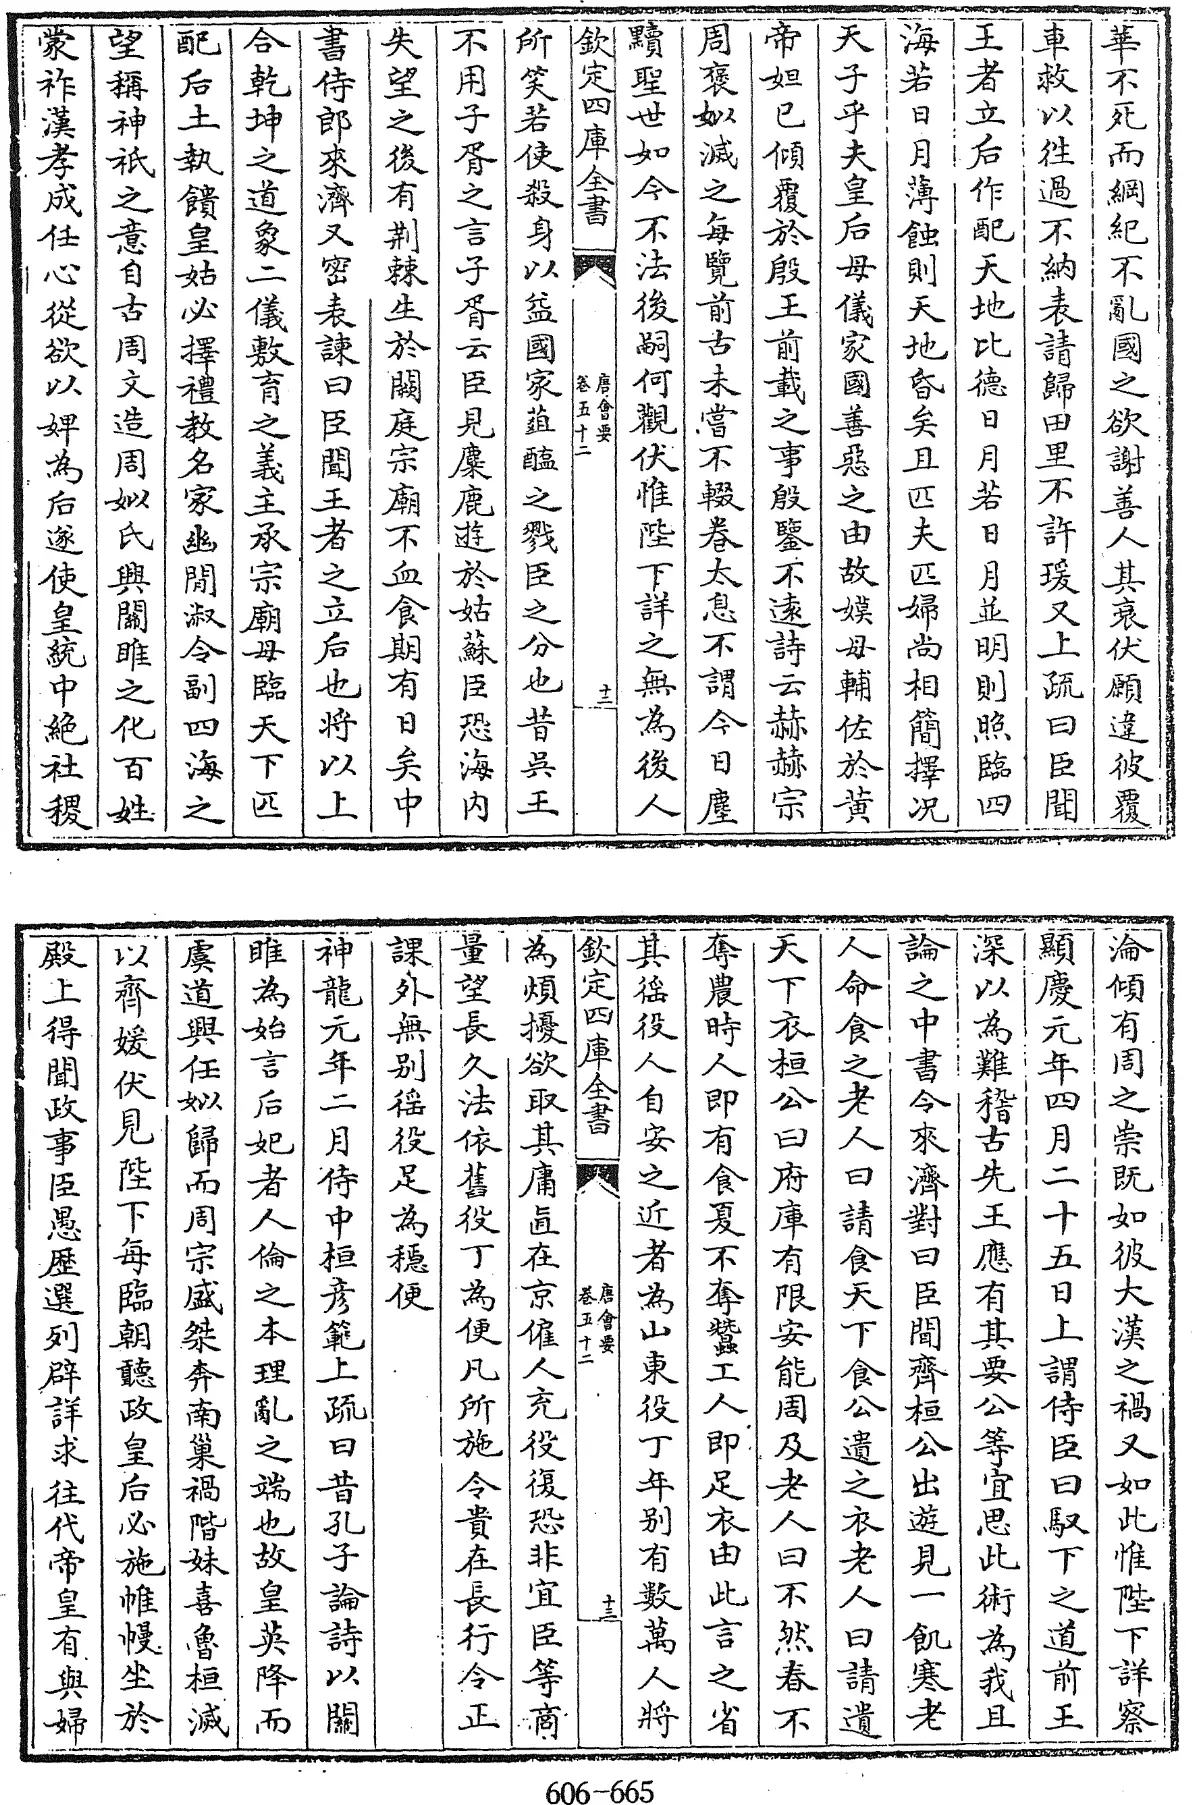 華不死而綱紀不亂國之欲謝善人其衰伏願違彼覆
車救以徃過不納表請歸田里不許瑗又上疏曰臣聞
王者立后作配天地比德日月若日月並明則照臨四
海若日月薄蝕則天地昏矣且匹夫匹婦尚相簡擇况
天子乎夫皇后母儀家國善惡之由故嫫母輔佐於黄
帝妲已傾覆於殷王前載之事殷鑒不遠詩云赫赫宗
周褒姒滅之每覽前古未嘗不輟卷太息不謂今日塵
黷聖世如今不法後嗣何觀伏惟陛下詳之無為後人
欽定四庫全書
唐會要
卷五十二
十二
所笑若使殺身以益國家葅醢之戮臣之分也昔吳王
不用子胥之言子胥云臣見麋鹿遊於姑蘇臣恐海内
失望之後有荆棘生於闕庭宗廟不血食期有日矣中
書侍郎來濟又密表諫曰臣聞王者之立后也將以上
合乾坤之道象二儀敷育之義主承宗廟母臨天下匹
配后土執饋皇姑必擇禮教名家幽閒淑令副四海之
望稱神祇之意自古周文造周姒氏興關雎之化百姓
蒙祚漢孝成任心從欲以婢為后遂使皇統中絶社稷
淪傾有周之崇既如彼大漢之禍又如此惟陛下詳察
顯慶元年四月二十五日上謂侍臣曰馭下之道前王
深以為難稽古先王應有其要公等宜思此術為我且
論之中書令來濟對曰臣聞齊桓公出遊見一飢寒老
人命食之老人曰請食天下食公遺之衣老人曰請遺
天下衣桓公曰府庫有限安能周及老人曰不然春不
奪農時人即有食夏不奪蠶工人即足衣由此言之省
其徭役人自安之近者為山東役丁年别有數萬人將
欽定四庫全書
唐會要
卷五十二
十三
為煩擾欲取其庸直在京僱人充役復恐非宜臣等商
量望長久法依舊役丁為便凡所施令貴在長行令正
課外無别徭役足為穩便
神龍元年二月侍中桓彦範上疏曰昔孔子論詩以關
雎為始言后妃者人倫之本理亂之端也故皇英降而
虞道興任姒歸而周宗盛桀奔南巢禍階妹喜魯桓滅
以齊媛伏見陛下每臨朝聽政皇后必施帷幔坐於
殿上得聞政事臣愚歴選列辟詳求往代帝皇有與婦
606-665